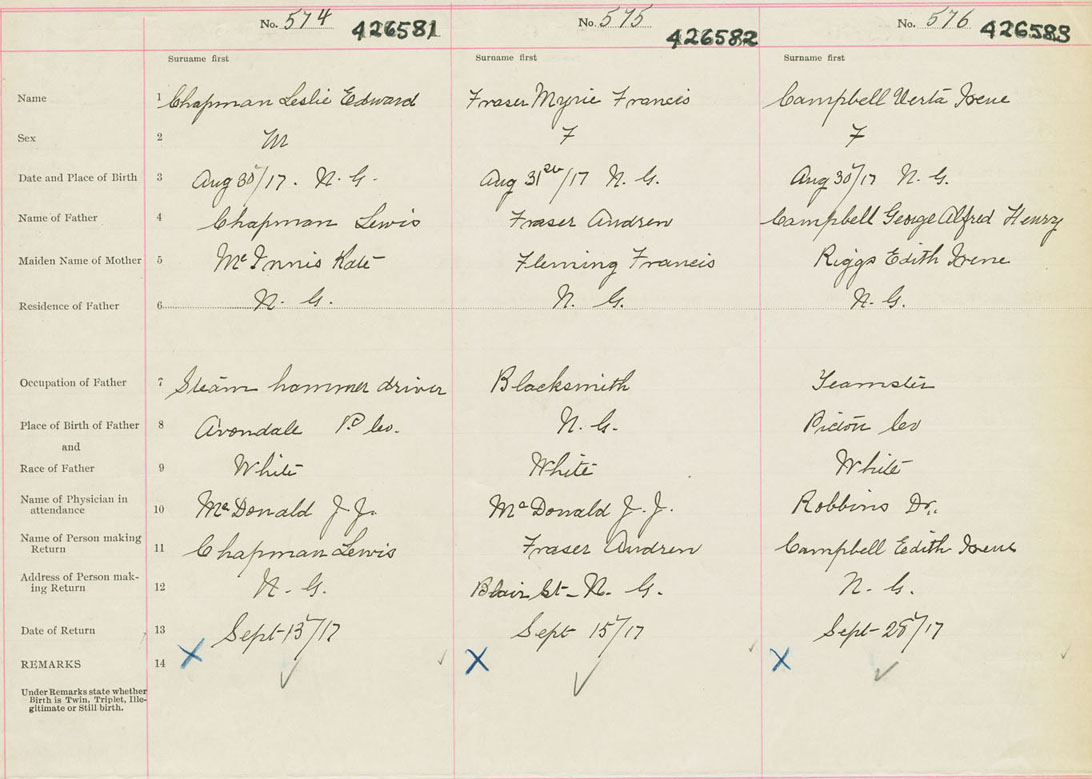 No. 574 426581 No. 575 426582 No. 576 426583
Surname first Surname first Surname first
Name 1 Chapman Leslie Edward Fraser Myrie Francis Campbell Verta Irene
Sex 2 M F F
Date and Place of Birth 3 Aug 30/17. N. G. Aug 31st/17 N. G. Aug 30/17 N. G.
Name of Father 4 Chapman Lewis Fraser Andrew Campbell George Alfred Henry
Maiden Name of Mother 5 McInnis Kate Fleming Francis Riggs Edith Irene
Residence of Father 6 N. G. N. G. N. G.
Occupation of Father 7 Steam hammer driver Blacksmith Teamster
Place of Birth of Father 8 Avondale P. Co. N. G. Pictou Co
and
Race of Father 9 White White White
Name of Physician in
attendance 10 McDonald J. J. McDonald J. J. Robbins Dr.
Name of Person making
Return 11 Chapman Lewis Fraser Andrew Campbell Edith Irene
Address of Person mak-
ing Return 12 N. G. Blair St - N. G. N. G.
Date of Return 13 Sept 13/17 Sept 15/17 Sept 28/17
REMARKS 14 X ✓ ✓ X ✓ ✓ X ✓ ✓
Under Remarks state whether
Birth is Twin, Triplet, Ille-
gitimate or Still birth.